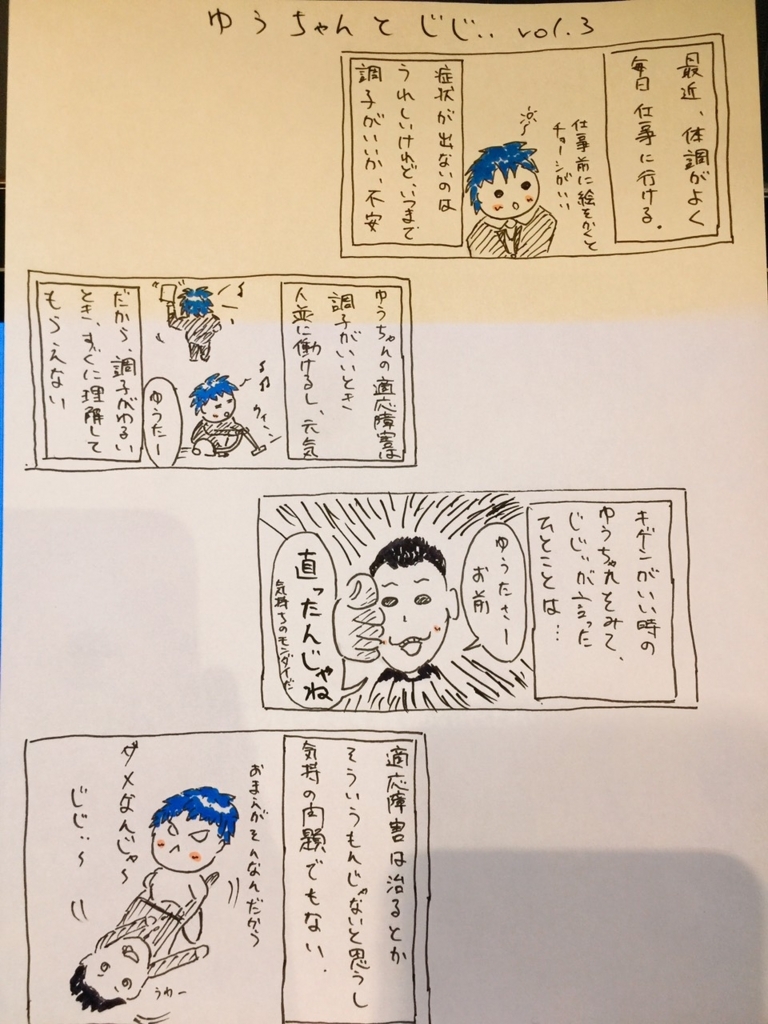 ゆうちゃんとじじぃ vol.3
最近、体調がよく
毎日仕事に行ける。
仕事前に絵をかくと
チョーシがいい
症状が出ないのは
うれしいけれど、いつまで
調子がいいか、不安
ゆうちゃんの適応障害は
調子がいいとき
人並に働けるし、元気
ウィーン
ゆうたー
だから、調子がゆるい
とき、すぐに理解して
もらえない
キゲンがいい時の
ゆうちゃんをみて、
じじぃが言った
ひとことは…
ゆうたさー
お前
直ったんじゃね
気持ちのモンダイだ
適応障害は治るとか
そういうもんじゃないと思うし
気持の問題でもない.
おまえがそんなんだから
ダメなんじゃ〜
じじぃ〜
うわー